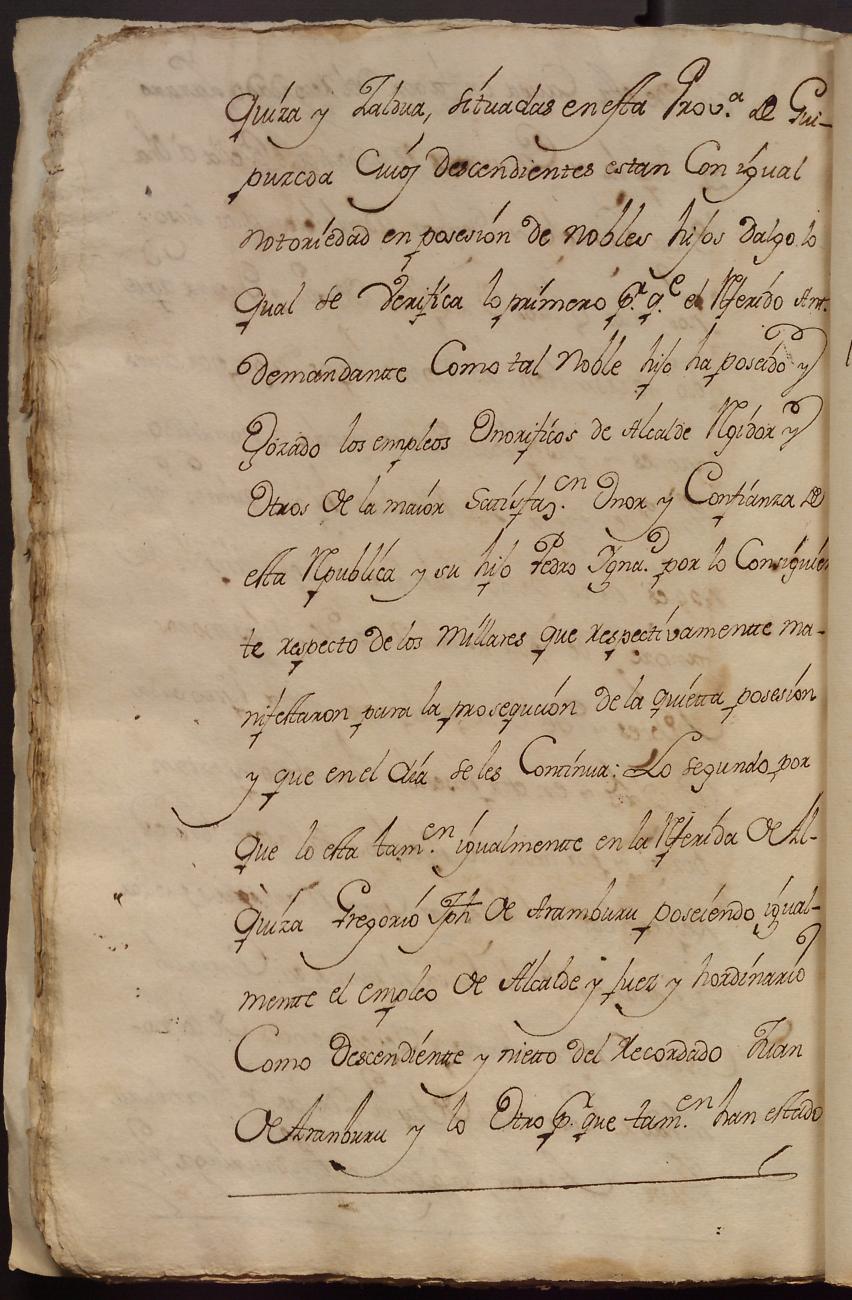 quiza y Zaldua, situadas en esta Prov.ª de Gui-
puzcoa Cuios descendientes estan Con igual
notoriedad en posesion de nobles hijos dalgo lo
qual se verifica lo primero p.r q.e el Rferido Ant.
demandante Como tal noble hijo ha poseido y
Gozado los empleos Onorificos de Alcalde Rgidor y
Otros de la maior Satisfaz.en Onor y Confianza de
esta Rpublica y su hijo Pedro Ygna.o por lo Consiguien
te respecto de los millares que respectivamentte ma-
nifestaron para la prosequcion de la quietta posesion
y que en el dia se les Continua: Lo segundo por
que lo esta tam.en igualmentte en la Rferida de Al-
quiza Gregorio Jph de Aramburu poseiendo igual-
mentte el empleo de Alcalde y Juez y hordinario
Como Descendientte y nietto del Recordado Juan
de Aranburu y lo Otro p.r que tam.en han estado